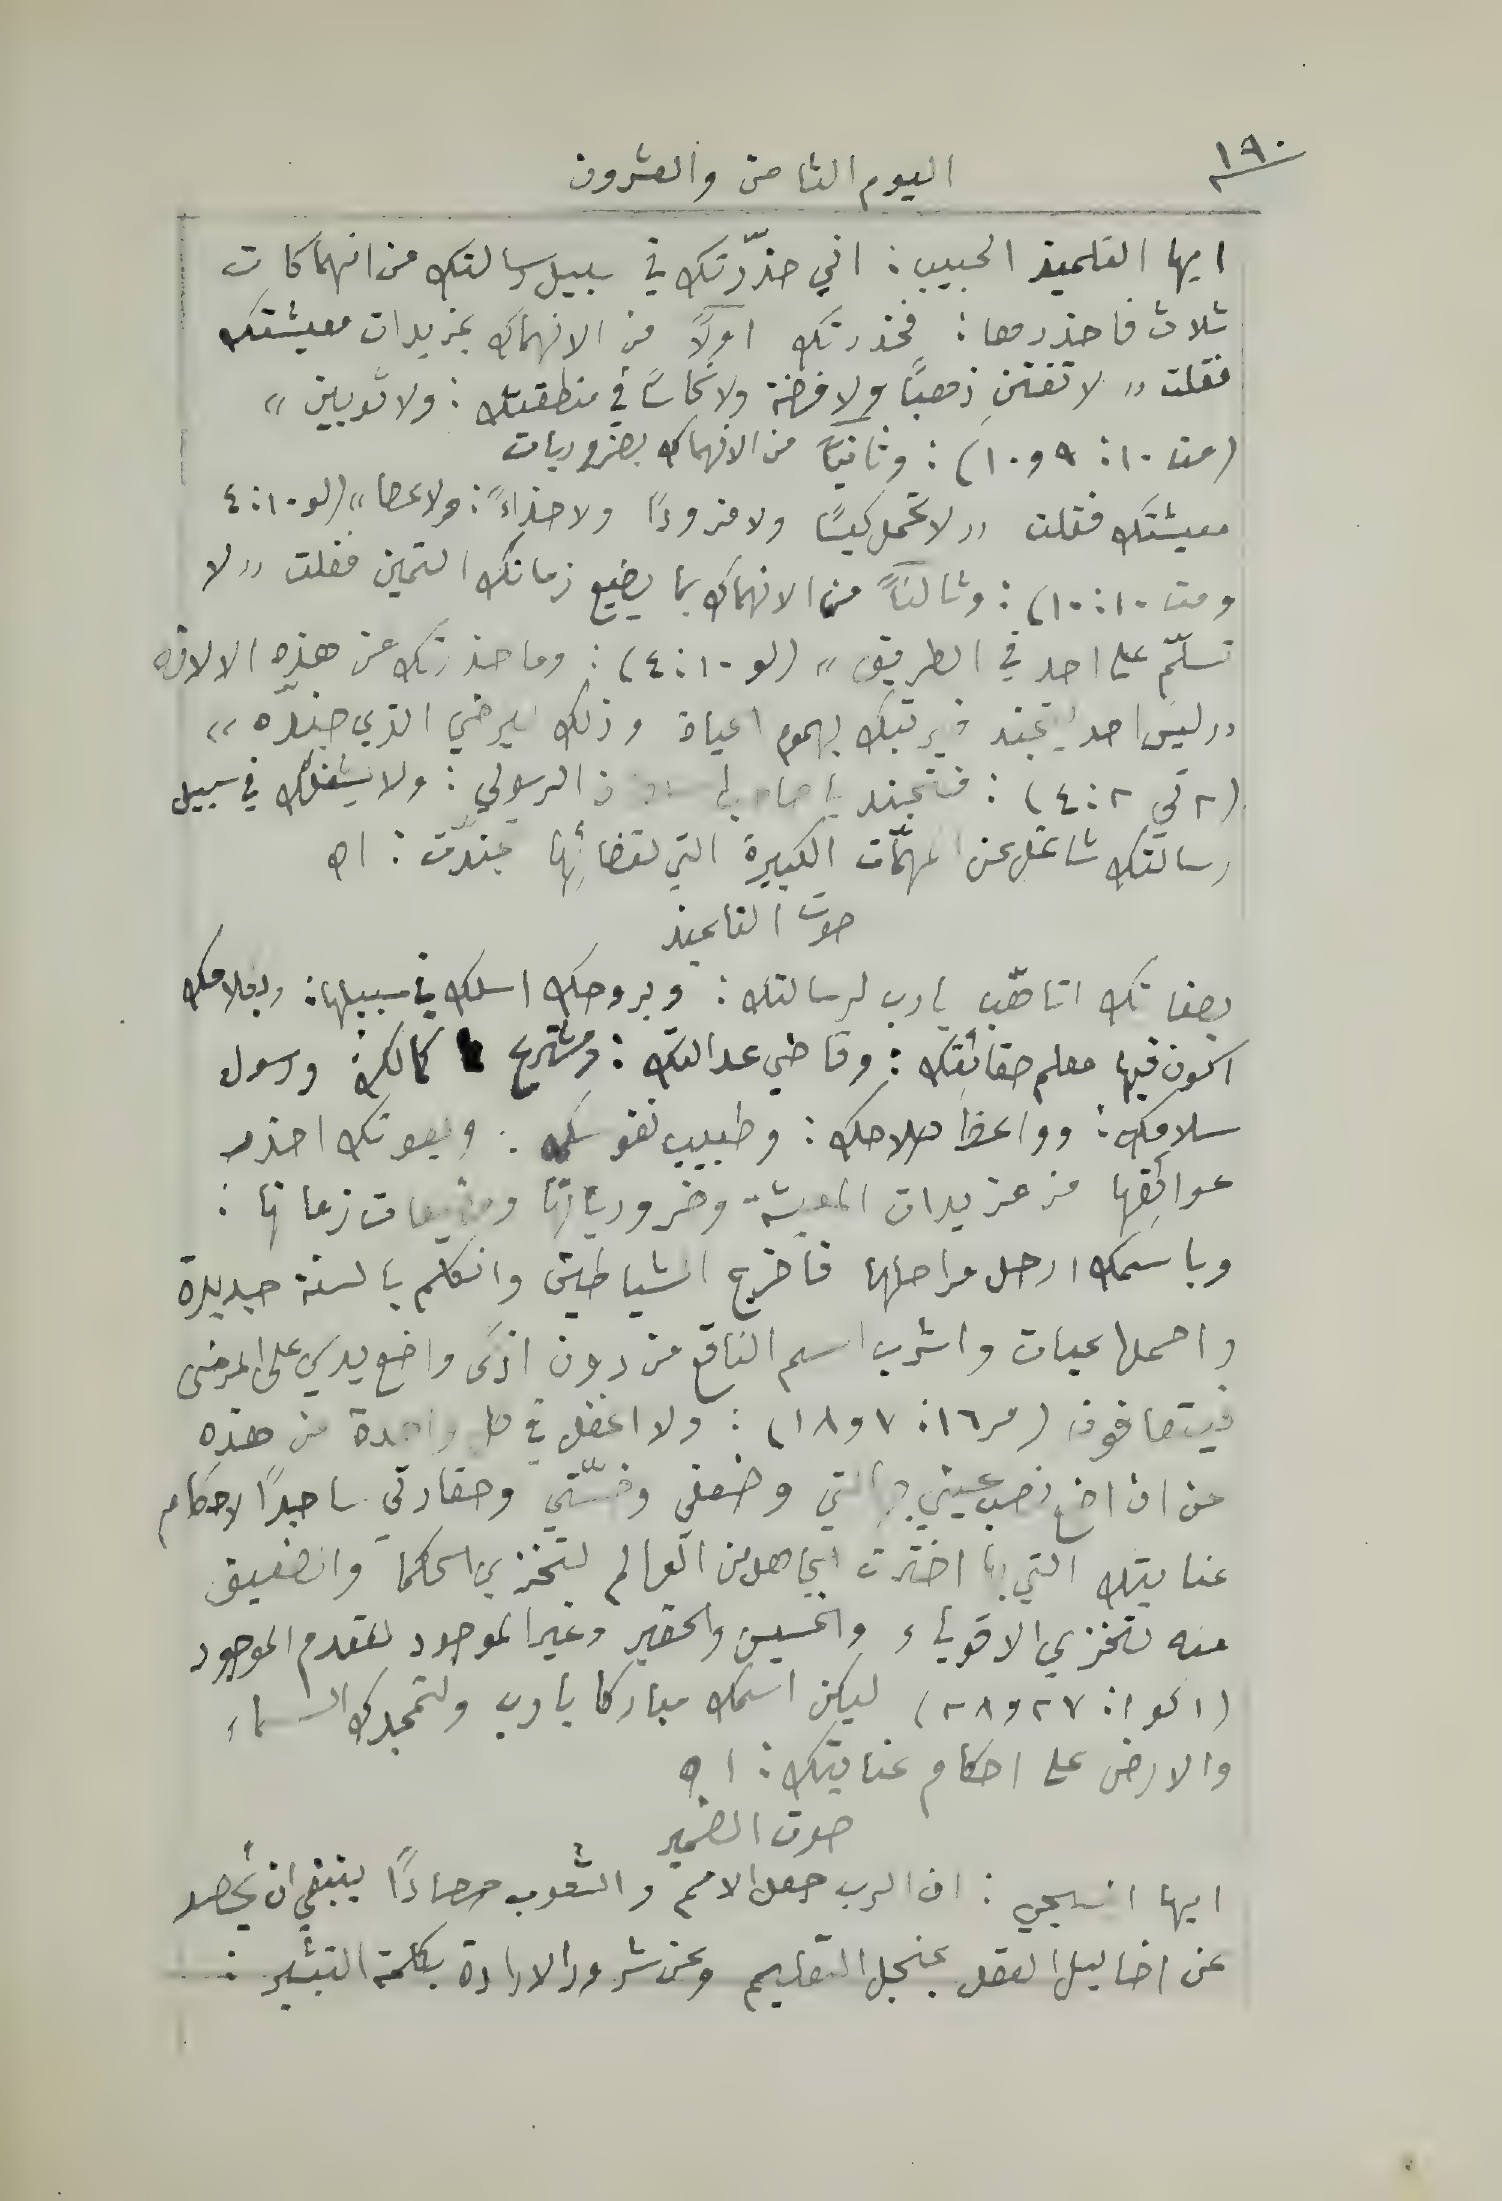 ١٩٠
اليوم الثامن والعشرون
ايها التلميذ الحبيب : اني حذّرتك في سبيل رسالتك من انهماكات
ثلاث فاحذرها : فحذرتك اولاً من الانهماك بمزيدات معيشتك
فقلت « لا تقتنِ ذهبًا ولا فضة ولا نحاسًا في منطقتك : ولا ثوبين »
(مت ١٠: ٩ و١٠) : وثانيًا من الانهماك بضروريات
معيشتك فقلت « لا تحمل كيسًا ولا مزودًا ولا حذاءً : ولا عصا » (لو ١٠: ٤
ومت ١٠:١٠) : وثالثاً من الانهماك بما يضيع زمانك الثمين فقلت « لا
تسلّم على احد في الطريق » (لو ١٠: ٤) : وما حذرتك من هذه الا لانه
« ليس احد يتجند فيرتبك بهموم الحياة وذلك ليرضي الذي جنّده »
(٢ تي ٢: ٤) : فتجند يا الرسولي : ولا يشغلك في سبيل
رسالتك شاغل عن المهمّات الكبيرة التي لقضائها تجندّت : اه
صوت التلميذ
بصفاتك اتأهّب يا رب لرسالتك : وبروحك اسلك في سبيلها : وبكلامك
اكون فيها معلم حقائقك : وقاضي عدالتك : ومشترع كمالك : ورسول
سلامك : وواعظ صلاحك : وطبيب نفوسك : وبصوتك احذر
عوائقها من مزيدات المعيشة وضرورياتها ومضيعات زمانها :
وباسمك ارحل مراحلها فأخرج الشياطين واتكلم بالسنة جديدة
واحمل حيات واشرب السم الناقع من دون اذًى واضع يدي على المرضى
فيتعافون (مر ١٦: ١٧ و١٨) : ولا اغفل في واحدة من هذه
عن ان اضع نصب عينيّ جهالتي وضعفي وخسّتي وحقارتي ساجدًا لاحكام
عنايتك التي بها اخترت الجاهل من العالم لتخزي الحكما والضعيف
منه لتخزي الاقوياء والخسيس والحقير وغير الموجود لتعدم الموجود
(١كو ١: ٢٧ و٢٨) ليكن اسمك مباركا يا رب ولتمجدك السماء
والارض على احكام عنايتك : اه
صوت الضمير
ايها المسيحي : ان الرب جعل الامم والشعوب حصادًا ينبغي ان يُحصد
عن اضاليل العقل بمنجل التعليم وعن شرور الارادة بكلمة التبشير :